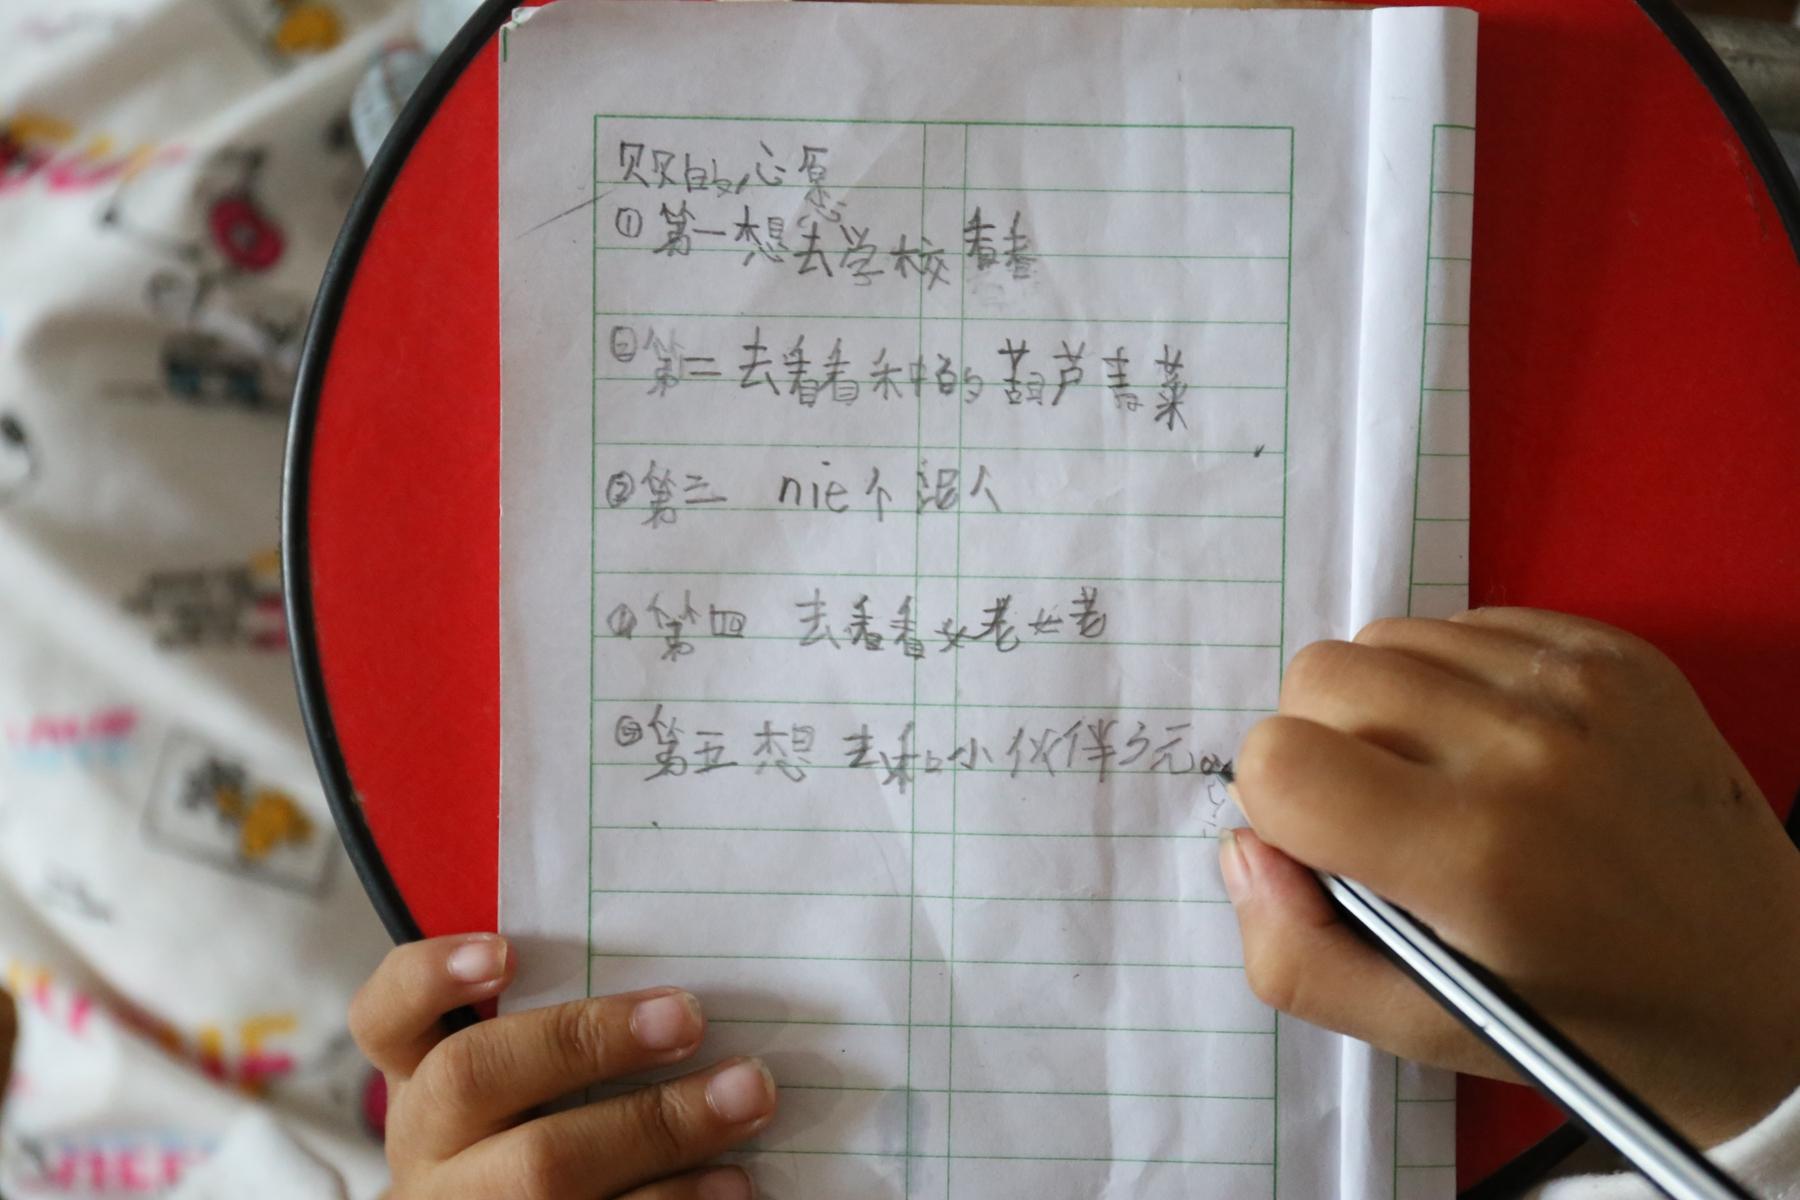 贝贝的心愿
①第一想去学校看看
②第二去看看禾中的葫芦青菜
③第三 nie个泥人
④第四 去看看女老女老
⑤第五想 去和小伙伴3元